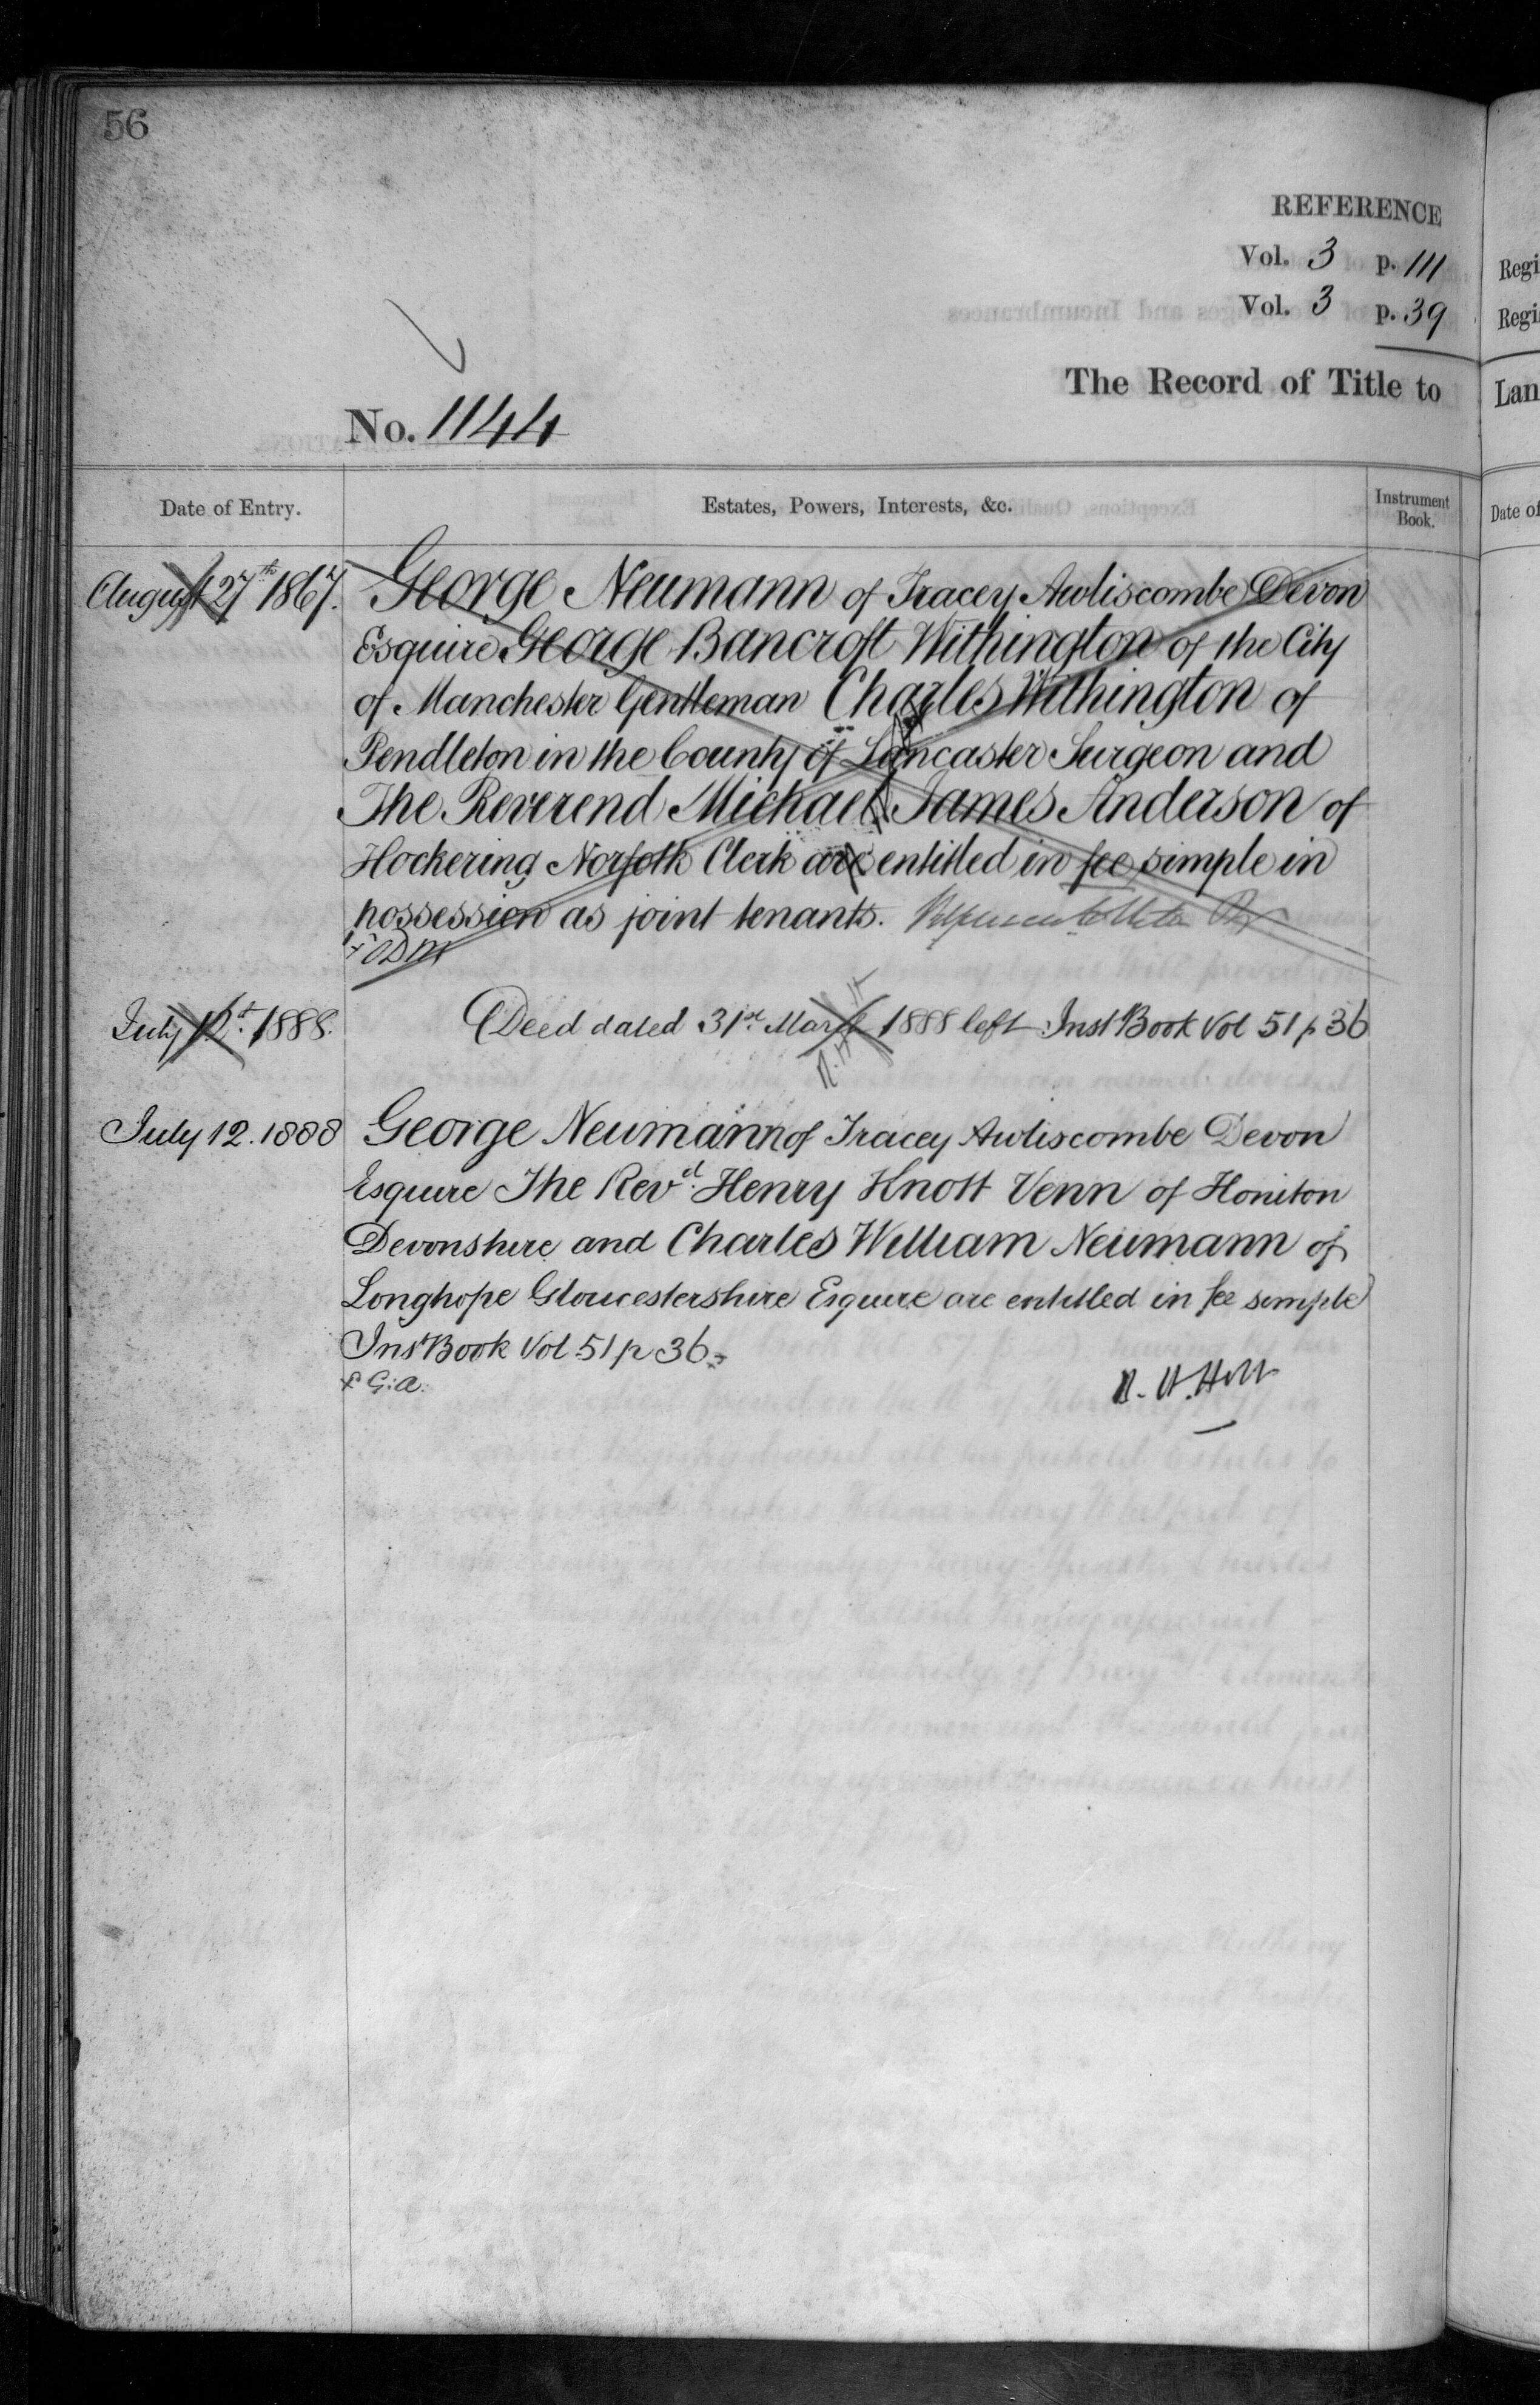 56
REFERENCE
Vol. 3 p. 111
Vol. 3 p. 39
The Record of Title to
No. 1144
Date of Entry.
Estates, Powers, Interests, &c.
Instrument
Book.
August 27th 1867. George Neumann of Tracey Awliscombe Devon
Esquire George Bancroft Withington of the City
of Manchester Gentleman Charles Withington of
Pendleton in the County of Lancaster Surgeon and
The Reverend Michael James Anderson of
Hockering Norfolk Clerk are entitled in fee simple in
possession as joint tenants.
July 1888. Deed dated 31st March 1888 left Inst Book Vol 51 p 36
R.H.H
July 12. 1888 George Neumann of Tracey Awliscombe Devon
Esquire The Revd. Henry Knott Venn of Honiton
Devonshire and Charles William Neumann of
Longhope Gloucestershire Esquire are entitled in fee simple
Inst Book Vol 51 p 36
G.A.
R. H. Holt
Regi
Regi
Lan
Date of